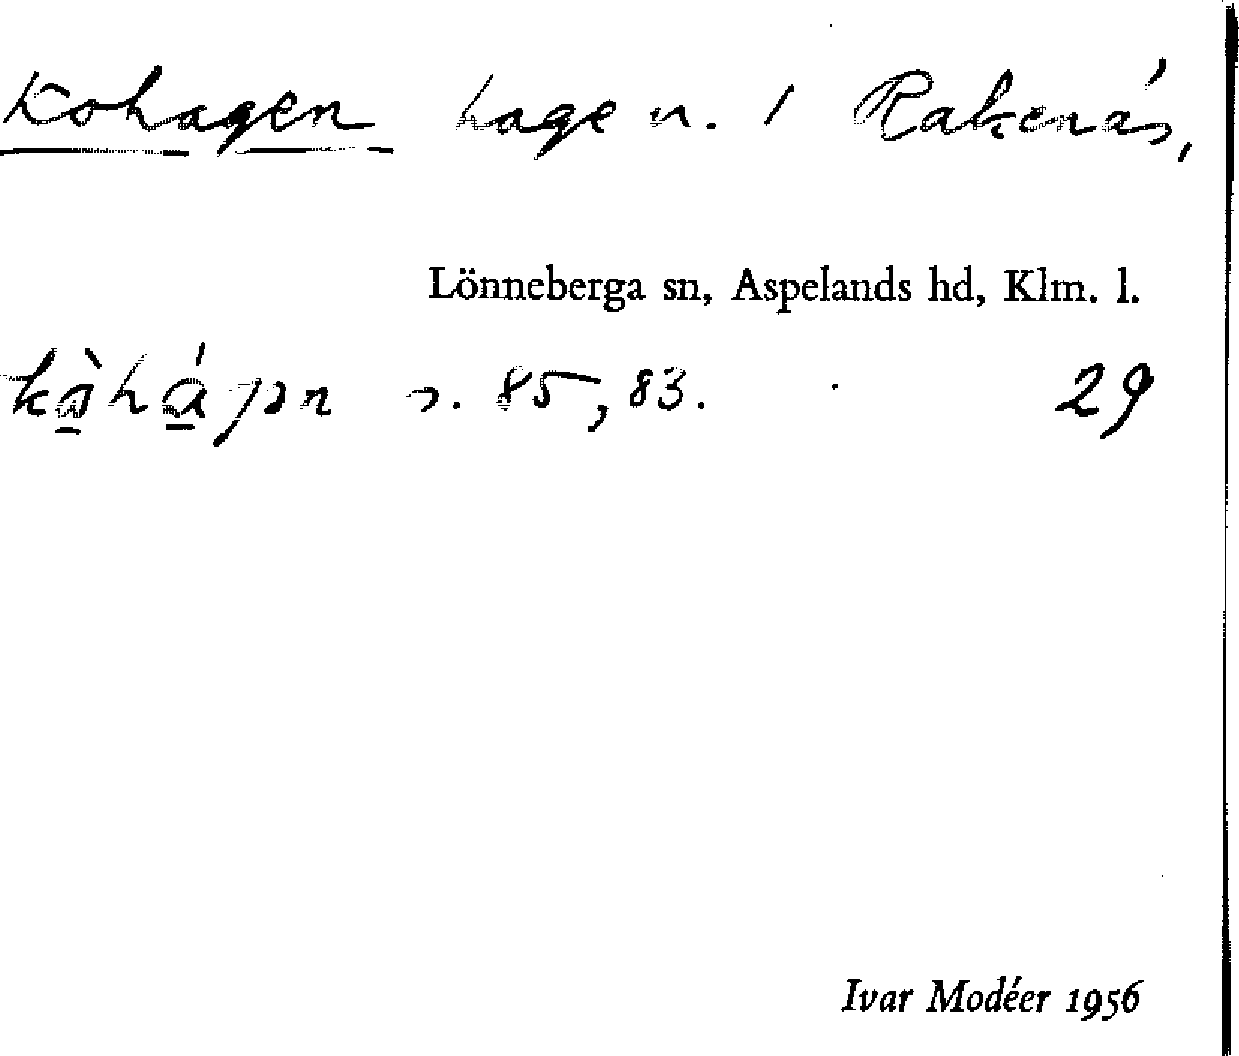 Kohagen hage n. 1 Rakenäs,
Lönneberga sn, Aspelands hd, Klm. l.
s. 85, 83. 29
Ivar Modéer 1956